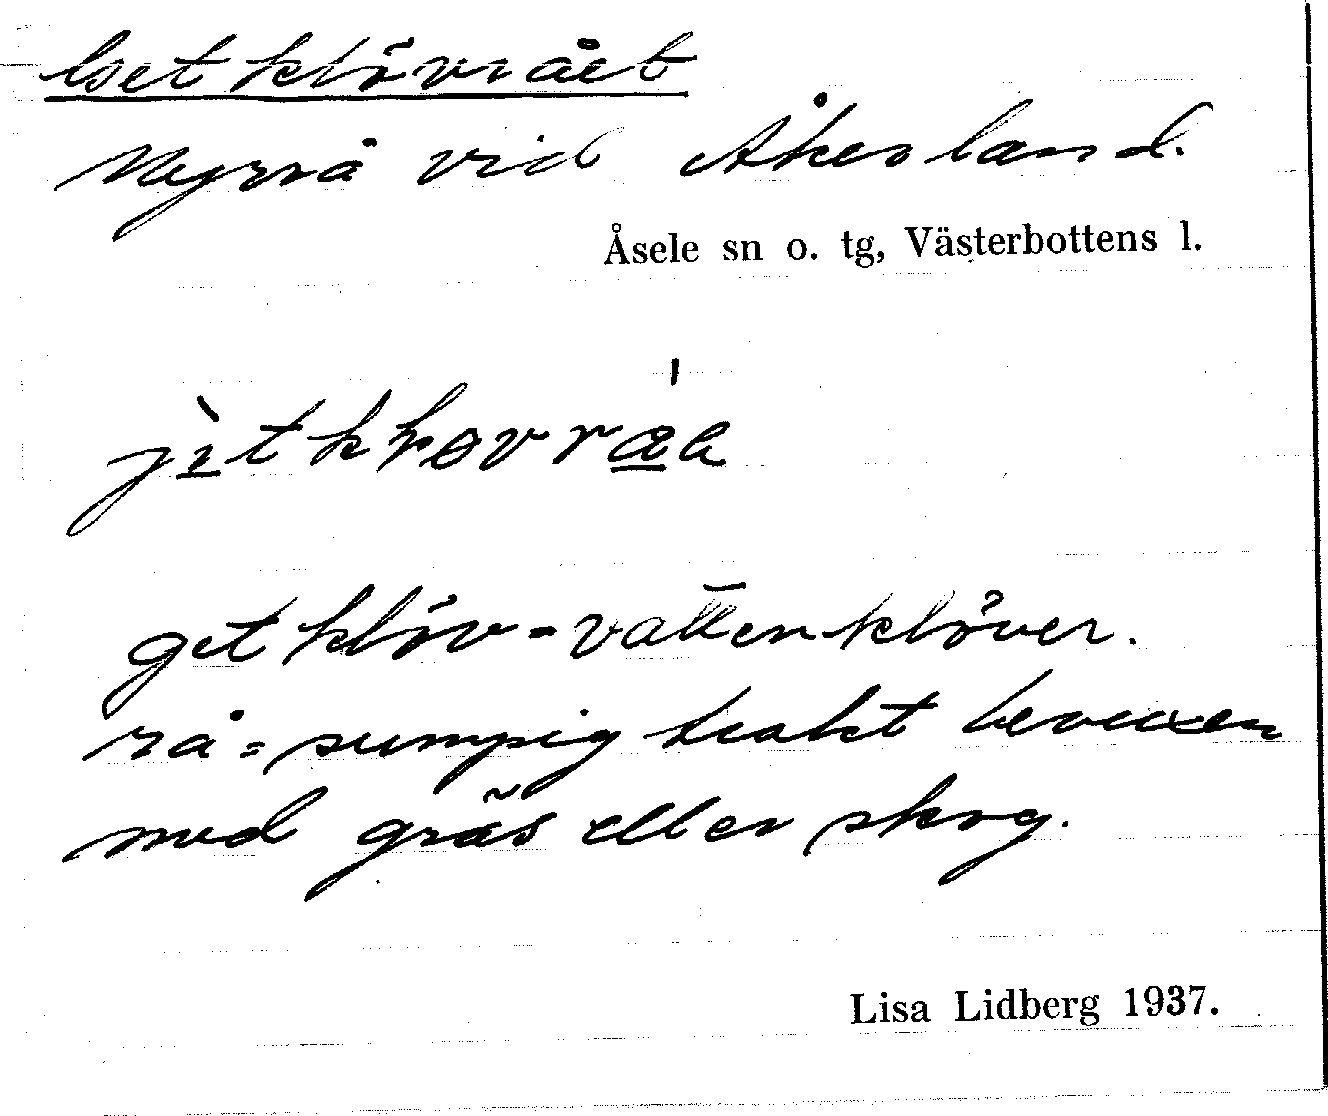 Getklövråêt
Myrrå vid Åkerland.
Åsele sn o. tg, Västerbottens l.
getklöv = vattenklöver.
rå = sumpig trakt bevuxen
med gräs eller skog.
Lisa Lidberg 1937.